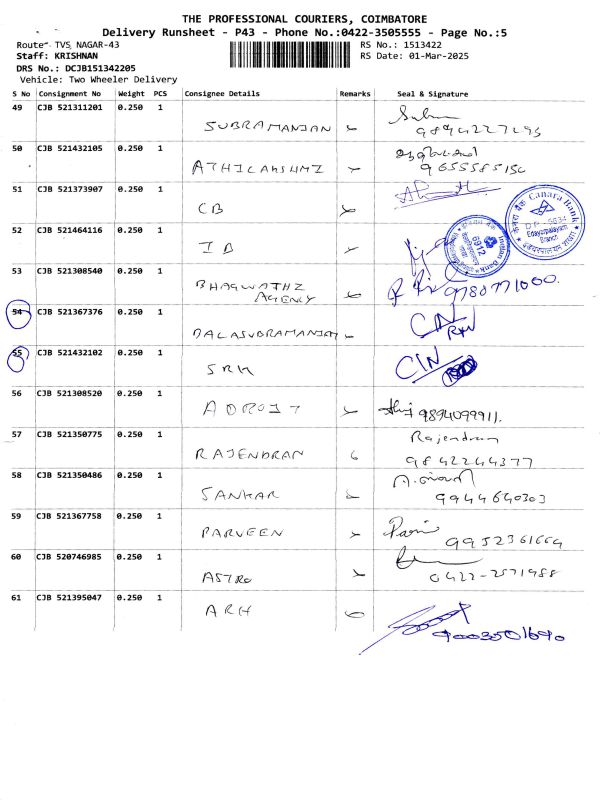 THE PROFESSIONAL COURIERS, COIMBATORE
Delivery Runsheet - P43 - Phone No.:0422-3505555 - Page No.:5
Route- TVS NAGAR-43 RS No.: 1513422
Staff: KRISHNAN RS Date: 01-Mar-2025
DRS No.: DCJB151342205
Vehicle: Two Wheeler Delivery
S No Consignment No Weight PCS Consignee Details Remarks Seal & Signature
49 CJB 521311201 0.250 1
SUBRAMANIAN
50 CJB 521432105 0.250 1
ATHILAKSHMI 9655585150
51 CJB 521373907 0.250 1
CB
Canara Bank
DP - 5634
Edayarpalayam
Branch
52 CJB 521464116 0.250 1
IB
Indian Bank
53 CJB 521308540 0.250 1
BHAGWATHI
AGENCY
54 CJB 521367376 0.250 1
BALASUBRAMANIAM
55 CJB 521432102 0.250 1
SRH
56 CJB 521308520 0.250 1
ADROIT 9894099911.
57 CJB 521350775 0.250 1
Rajendran
RAJENDRAN 9842244377
58 CJB 521350486 0.250 1
SANKAR 9944640303
59 CJB 521367758 0.250 1
PARVEEN 9952361664
60 CJB 520746985 0.250 1
ASTRO 0422-2571988
61 CJB 521395047 0.250 1
ARH
9003501690